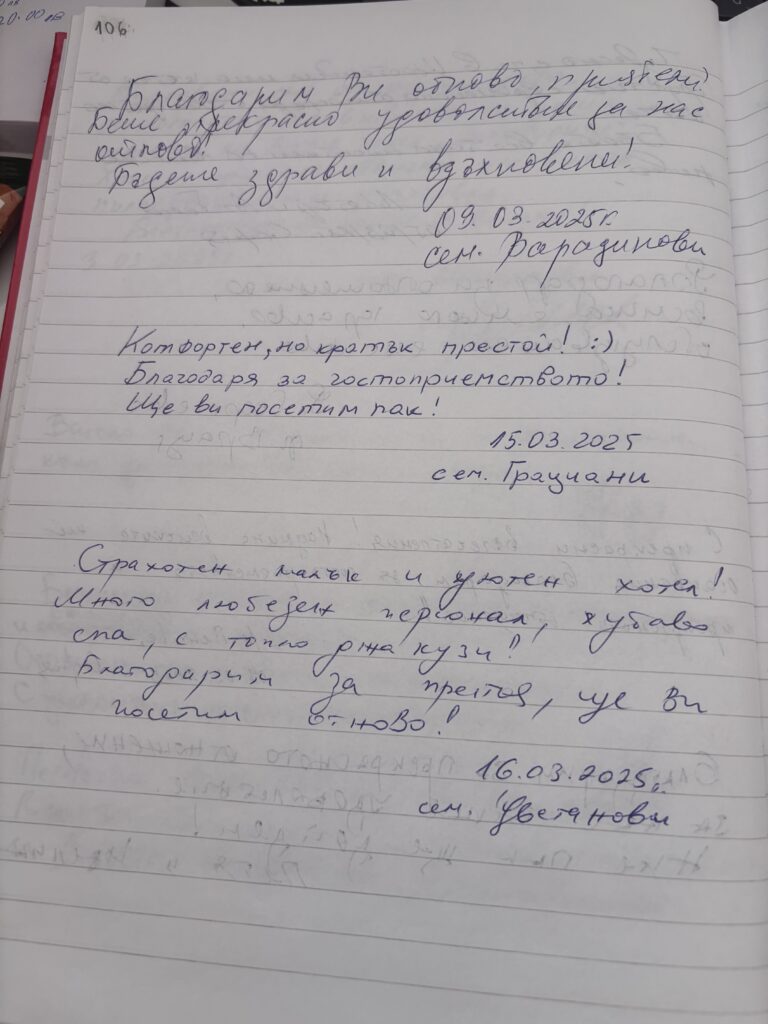 106
Благодарим Ви отново, приятели!
Беше прекрасно удоволствие за нас
отново!
Бъдете здрави и вдъхновени!
09.03.2025г.
сем. Варадинови
Комфортен, но кратък престой! :)
Благодаря за гостоприемството!
Ще ви посетим пак!
15.03.2025
сем. Грациани
Страхотен малък и уютен хотел!
Много любезен персонал, хубаво
спа, с топло джакузи!
Благодарим за престоя, ще Ви
посетим отново!
16.03.2025г.
сем. Цветанови